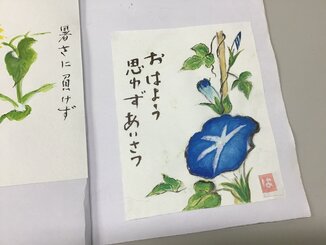 おはよう
思わずあいさつ
は
暑さに負けず